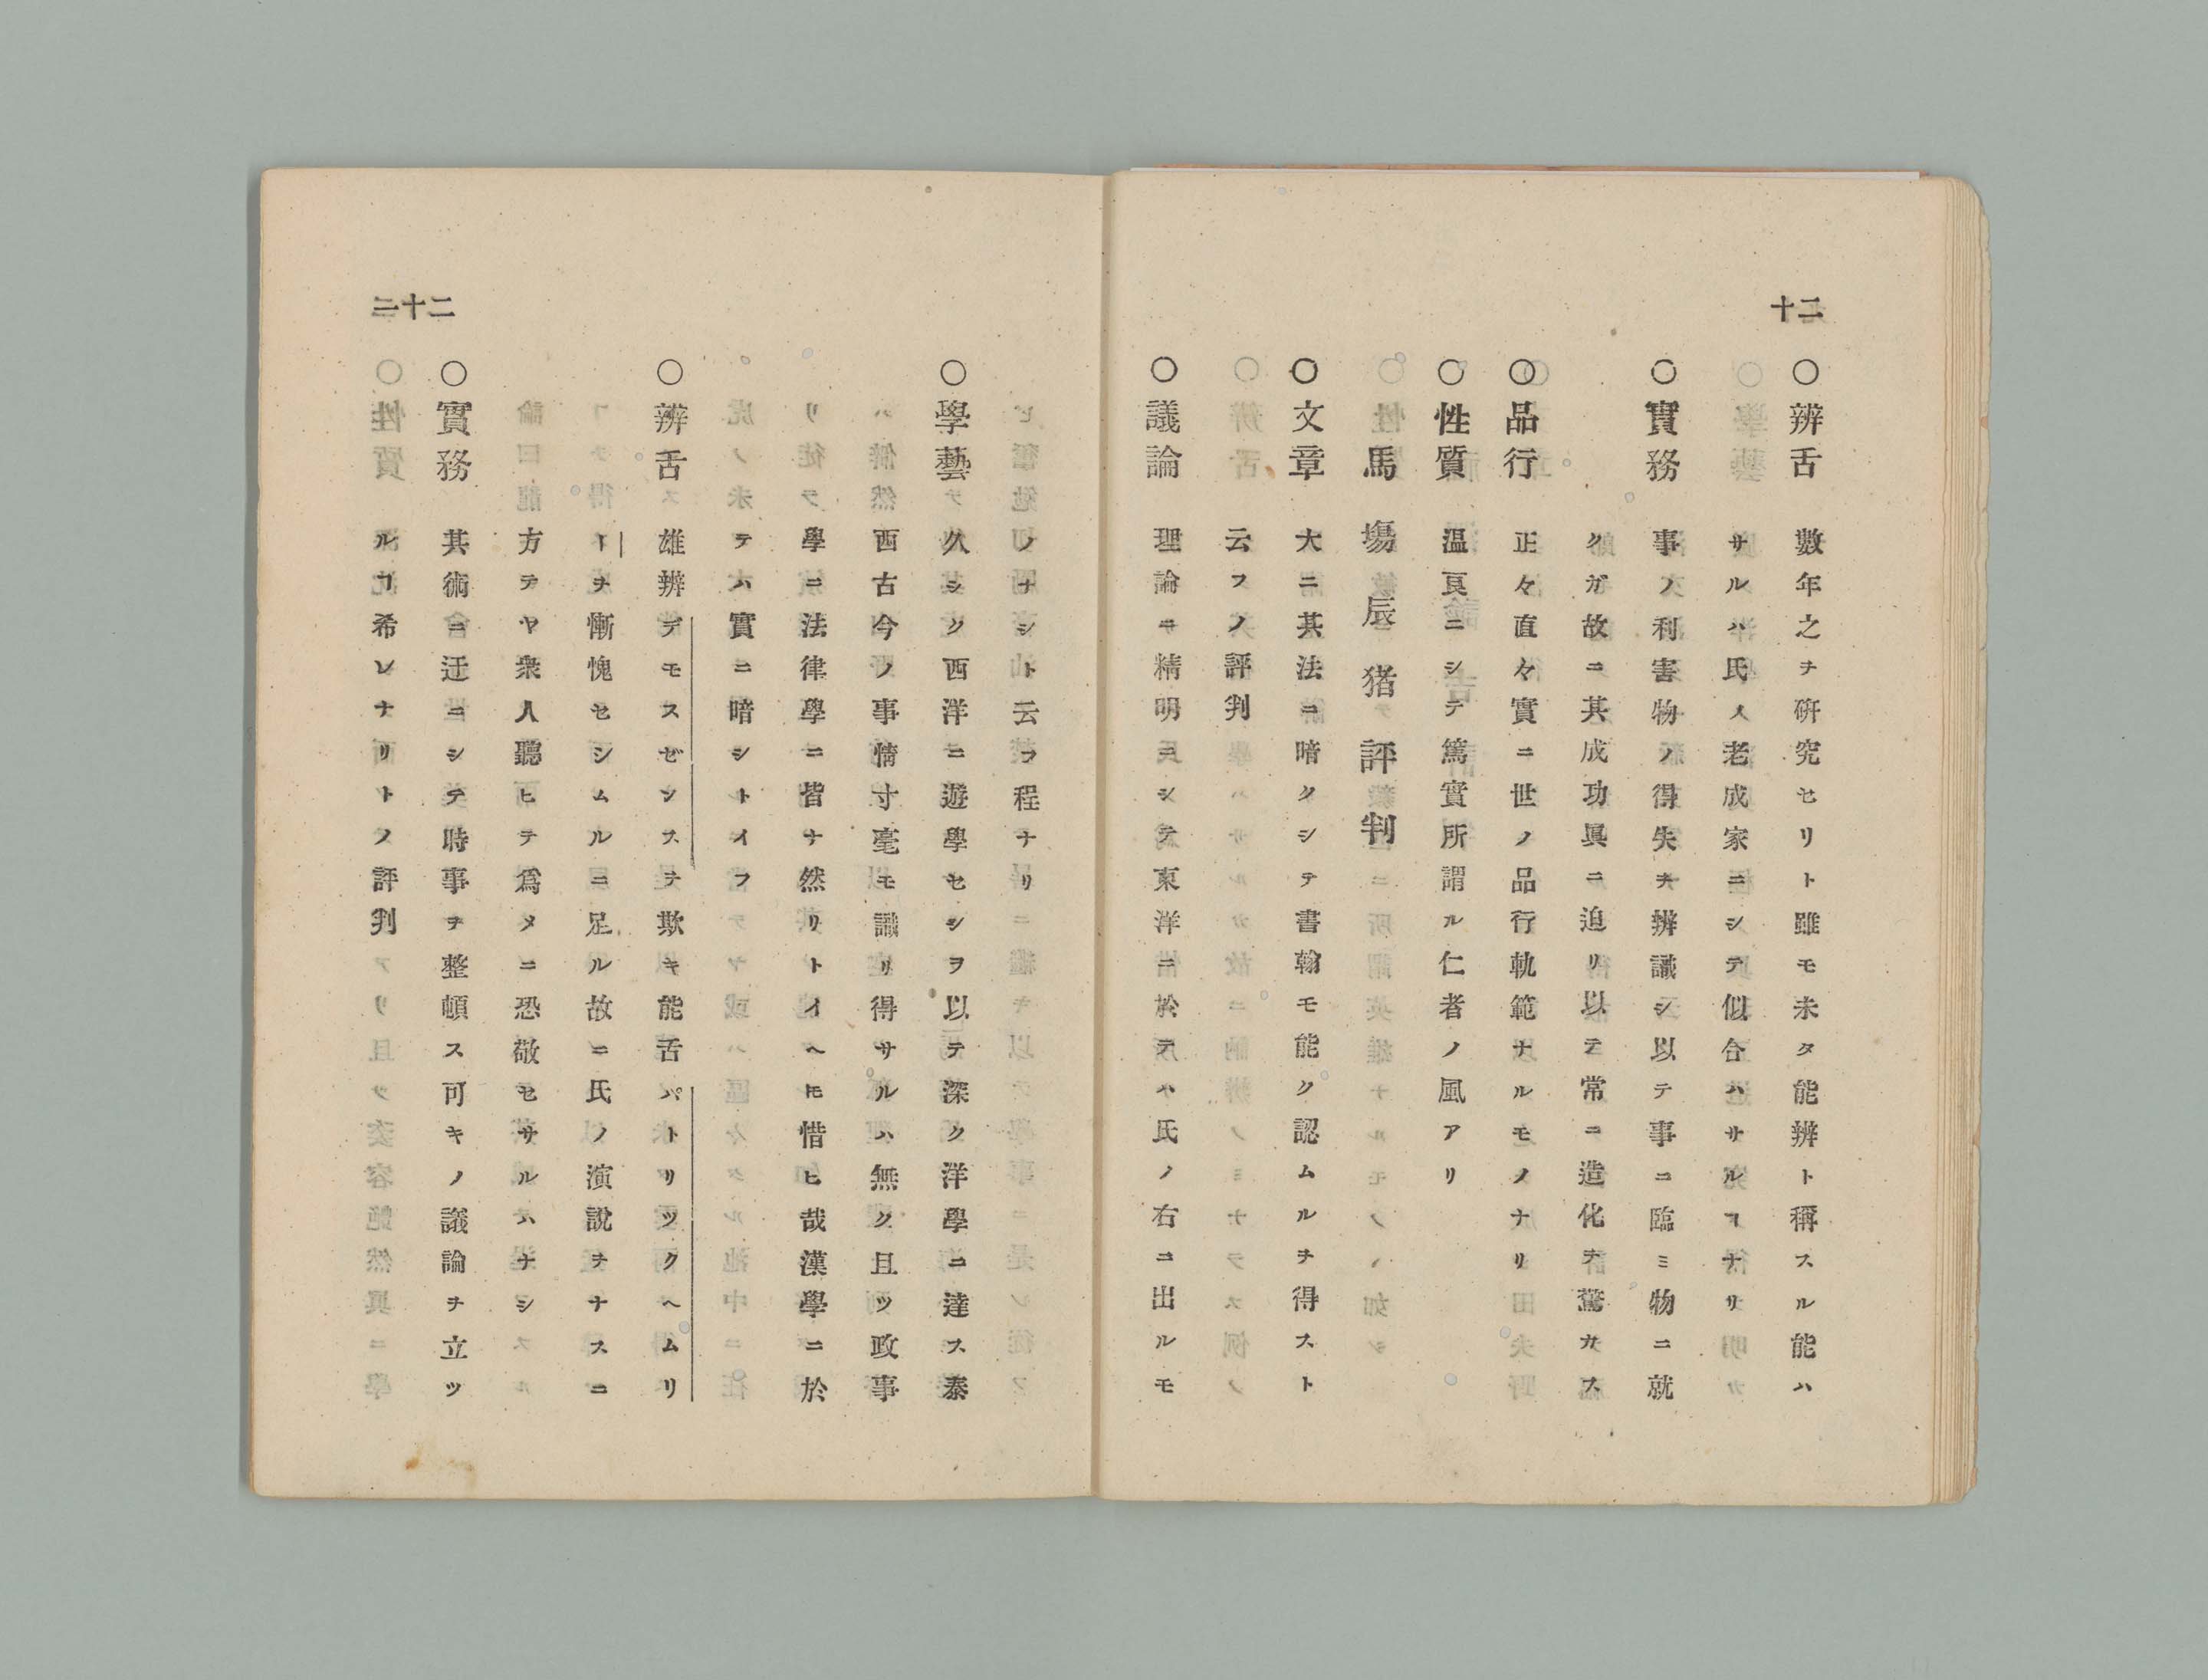 二十
○辨舌　數年之ヲ研究セリト雖モ未タ能辨ト稱スル能ハ
サルハ氏ノ老成家ニシテ似合ハサルヿナリ
○實務　事ノ利害物ノ得失ヲ辨識シ以テ事ニ臨ミ物ニ就
クガ故ニ其成功眞ニ迫リ以テ常ニ造化ヲ驚カス
○品行　正々直々實ニ世ノ品行軌範ナルモノナリ
○性質　溫良ニシテ篤實所謂ル仁者ノ風アリ
馬塲辰猪評判
○文章　大ニ其法ニ暗クシテ書翰モ能ク認ムルヲ得スト
云フノ評判
○議論　理論ニ精明ニシテ東洋ニ於テハ氏ノ右ニ出ルモ
二十二
ノナシト云フ程ナリ
○學藝　久シク西洋ニ遊學セシヲ以テ深ク洋學ニ達ス泰
西古今ノ事情寸毫モ識リ得サルハ無ク且ツ政事
學ニ法律學ニ皆ナ然リトイヘ𪜈惜ヒ哉漢學ニ於
テハ實ニ暗シトイフ
○辨舌　雄辨デモスゼンスヲ欺キ能舌パトリツクヘムリ
ーヲ慚愧セシムルニ足ル故ニ氏ノ演說ヲナスニ
方テヤ衆人聽ヒテ爲メニ恐敬セサルハナシ
○實務　其術ニ迂ニシテ時事ヲ整頓ス可キノ議論ヲ立ツ
ルヿ希レナリトノ評判